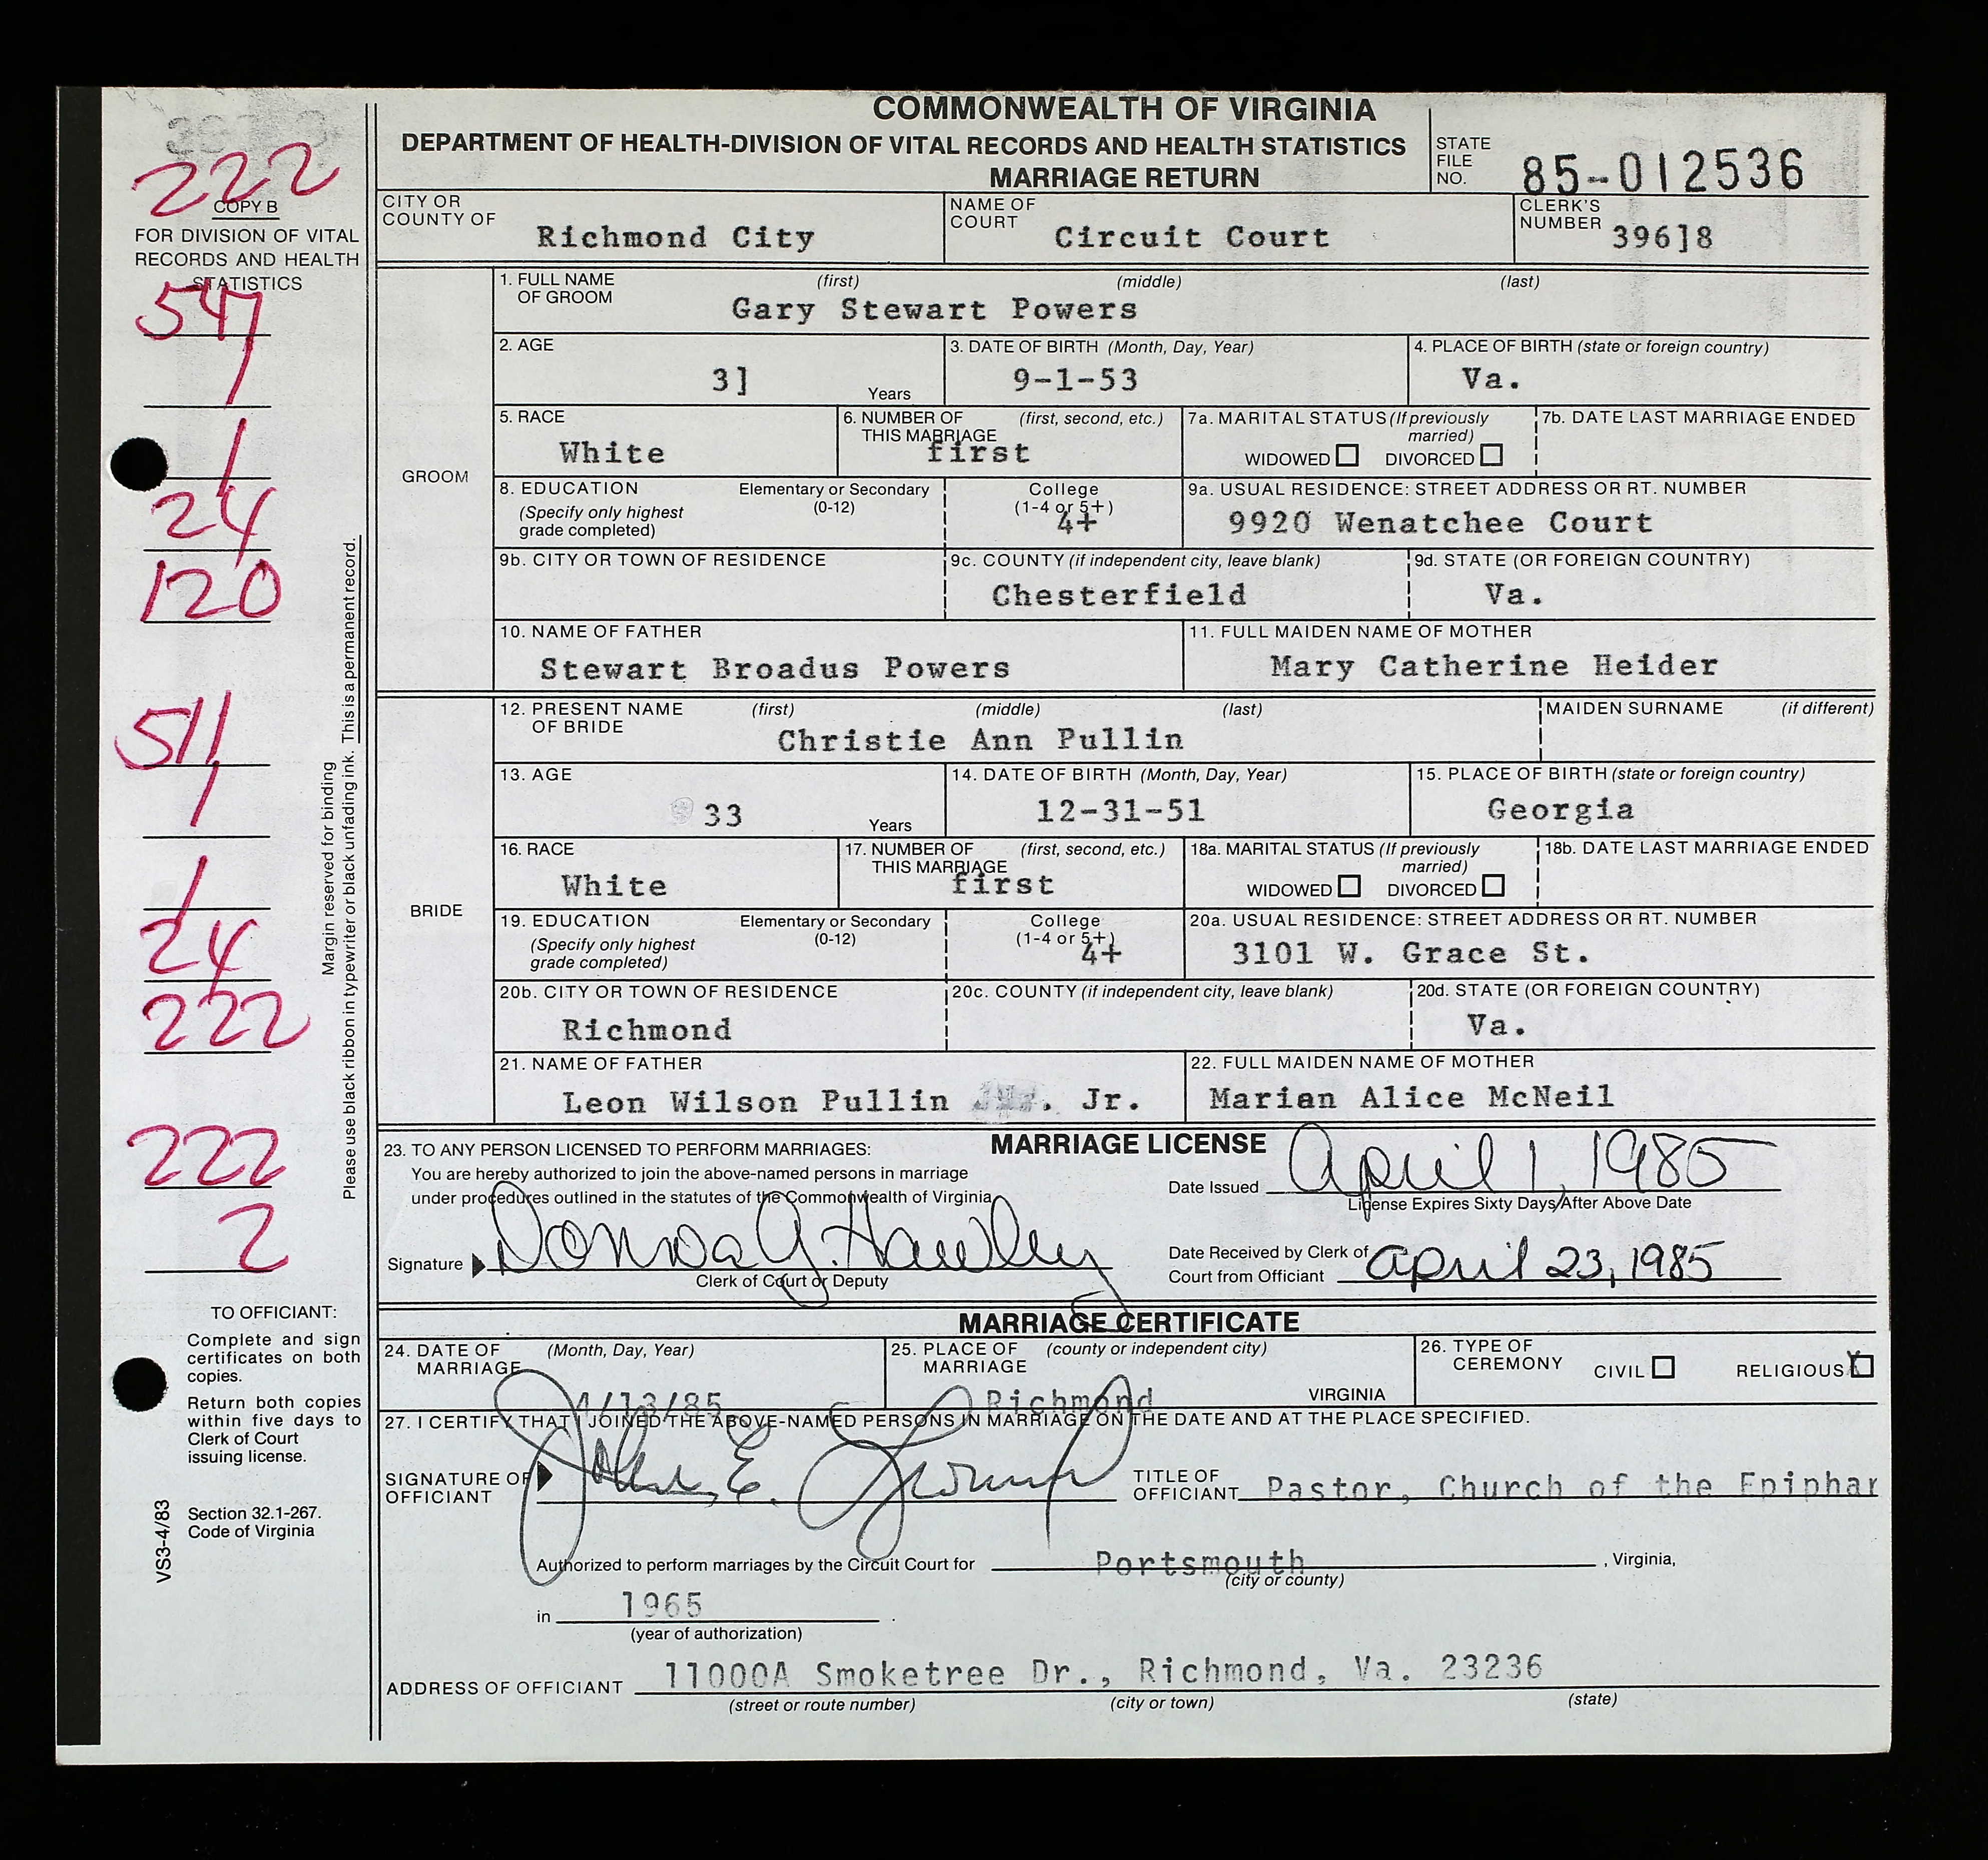 COMMONWEALTH OF VIRGINIA
DEPARTMENT OF HEALTH-DIVISION OF VITAL RECORDS AND HEALTH STATISTICS
MARRIAGE RETURN
STATE FILE NO. 85-012536
222
COPY B
FOR DIVISION OF VITAL
RECORDS AND HEALTH
STATISTICS
547
1
1
24
120
511
1
1
24
222
222
2
Margin reserved for binding
Please use black ribbon in typewriter or black unfading ink. This is a permanent record.
TO OFFICIANT:
Complete and sign
certificates on both
copies.
Return both copies
within five days to
Clerk of Court
issuing license.
Section 32.1-267.
Code of Virginia
VS3-4/83
CITY OR COUNTY OF Richmond City
NAME OF COURT Circuit Court
CLERK'S NUMBER 396]8
GROOM
1. FULL NAME OF GROOM (first) (middle) (last)
Gary Stewart Powers
2. AGE 3] Years
3. DATE OF BIRTH (Month, Day, Year) 9-1-53
4. PLACE OF BIRTH (state or foreign country) Va.
5. RACE White
6. NUMBER OF THIS MARRIAGE (first, second, etc.) first
7a. MARITAL STATUS (If previously married) WIDOWED DIVORCED
7b. DATE LAST MARRIAGE ENDED
8. EDUCATION (Specify only highest grade completed) Elementary or Secondary (0-12) College (1-4 or 5+) 4+
9a. USUAL RESIDENCE: STREET ADDRESS OR RT. NUMBER
9920 Wenatchee Court
9b. CITY OR TOWN OF RESIDENCE
9c. COUNTY (if independent city, leave blank) Chesterfield
9d. STATE (OR FOREIGN COUNTRY) Va.
10. NAME OF FATHER Stewart Broadus Powers
11. FULL MAIDEN NAME OF MOTHER Mary Catherine Heider
BRIDE
12. PRESENT NAME OF BRIDE (first) (middle) (last)
Christie Ann Pullin
MAIDEN SURNAME (if different)
13. AGE 33 Years
14. DATE OF BIRTH (Month, Day, Year) 12-31-51
15. PLACE OF BIRTH (state or foreign country) Georgia
16. RACE White
17. NUMBER OF THIS MARRIAGE (first, second, etc.) first
18a. MARITAL STATUS (If previously married) WIDOWED DIVORCED
18b. DATE LAST MARRIAGE ENDED
19. EDUCATION (Specify only highest grade completed) Elementary or Secondary (0-12) College (1-4 or 5+) 4+
20a. USUAL RESIDENCE: STREET ADDRESS OR RT. NUMBER
3101 W. Grace St.
20b. CITY OR TOWN OF RESIDENCE Richmond
20c. COUNTY (if independent city, leave blank)
20d. STATE (OR FOREIGN COUNTRY) Va.
21. NAME OF FATHER Leon Wilson Pullin Jr.
22. FULL MAIDEN NAME OF MOTHER Marian Alice McNeil
23. TO ANY PERSON LICENSED TO PERFORM MARRIAGES: MARRIAGE LICENSE
You are hereby authorized to join the above-named persons in marriage
under procedures outlined in the statutes of the Commonwealth of Virginia
Date Issued April 1, 1985
License Expires Sixty Days After Above Date
Signature Donna G. Hawley
Clerk of Court or Deputy
Date Received by Clerk of Court from Officiant April 23, 1985
MARRIAGE CERTIFICATE
24. DATE OF MARRIAGE (Month, Day, Year) 4/13/85
25. PLACE OF MARRIAGE (county or independent city) Richmond VIRGINIA
26. TYPE OF CEREMONY CIVIL RELIGIOUS X
27. I CERTIFY THAT I JOINED THE ABOVE-NAMED PERSONS IN MARRIAGE ON THE DATE AND AT THE PLACE SPECIFIED.
SIGNATURE OF OFFICIANT John E.
TITLE OF OFFICIANT Pastor, Church of the Epiphan
Authorized to perform marriages by the Circuit Court for Portsmouth, Virginia,
(city or county)
in 1965.
(year of authorization)
ADDRESS OF OFFICIANT 11000A Smoketree Dr., Richmond, Va. 23236
(street or route number) (city or town) (state)